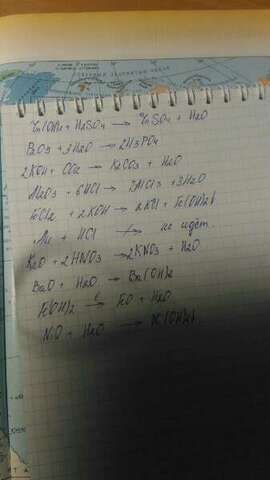 Zn(OH)2 + H2SO4 → ZnSO4 + H2O
P2O5 + 3H2O → 2H3PO4
2KOH + CO2 → K2CO3 + H2O
Al2O3 + 6HCl → 2AlCl3 + 3H2O
FeCl2 + 2KOH → 2KCl + Fe(OH)2↓
+ HCl не идёт.
K2O + 2HNO3 → 2KNO3 + H2O
BaO + H2O → Ba(OH)2
Fe(OH)2 → FeO + H2O
NiO + H2O → (OH)2↓